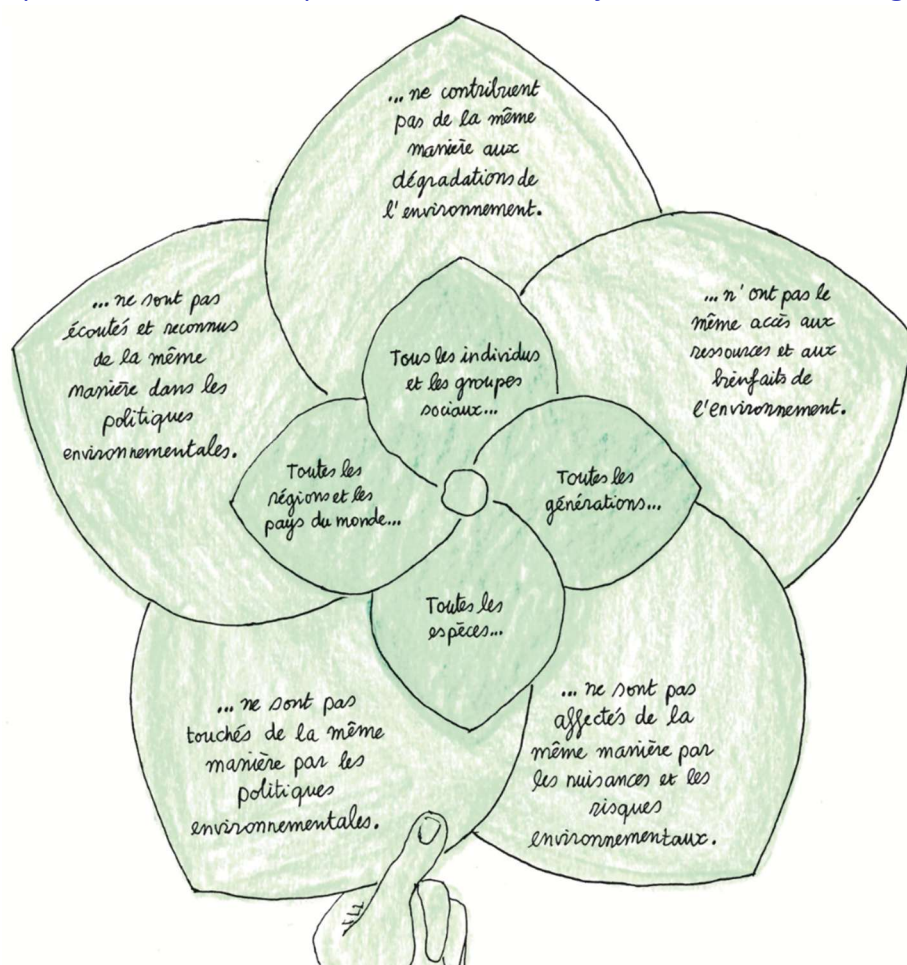 ...ne contribuent
pas de la même
manière aux
dégradations de
l'environnement.
...ne sont pas
écoutés et reconnus
de la même
manière dans les
politiques
environnementales.
...n'ont pas le
même accès aux
ressources et aux
bienfaits de
l'environnement.
Tous les individus
et les groupes
sociaux...
Toutes les
régions et les
pays du monde...
Toutes les
générations...
Toutes les
espèces...
...ne sont pas
touchés de la même
manière par les
politiques
environnementales.
...ne sont pas
affectés de la
même manière par
les nuisances et les
risques
environnementaux.